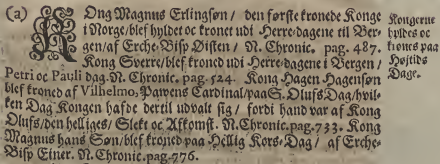 (a) KOng Magnus Erlingsøn / den første kronede Konge
i Norge / blef hyldet oc kronet udi Herre-dagene til Ber-
gen / af Erche-Bisp Øisten / N. Chronic. pag. 487.
Kong Sverre / blef kroned ved Herre-dagene i Bergen /
Petri oc Pauli dag. N. Chronic. pag. 524. Kong Hagen Hagensøn
blef kroned af Vilhelmo, Pawens Cardinal / paa S. Olufs Dag / hvil-
ken Dag Kongen hafde der til udvalt sig / fordi hand var af Kong
Olufs / den helliges / Slekt oc Afkomst. N. Chronic. pag. 733. Kong
Magnus hans Søn / blef kroned paa Hellig Kors-Dag / af Erche-
Bisp Einer. N. Chronic. pag. 776.
Kongerne
hyldes oc
krones paa
Højtids
Dage.